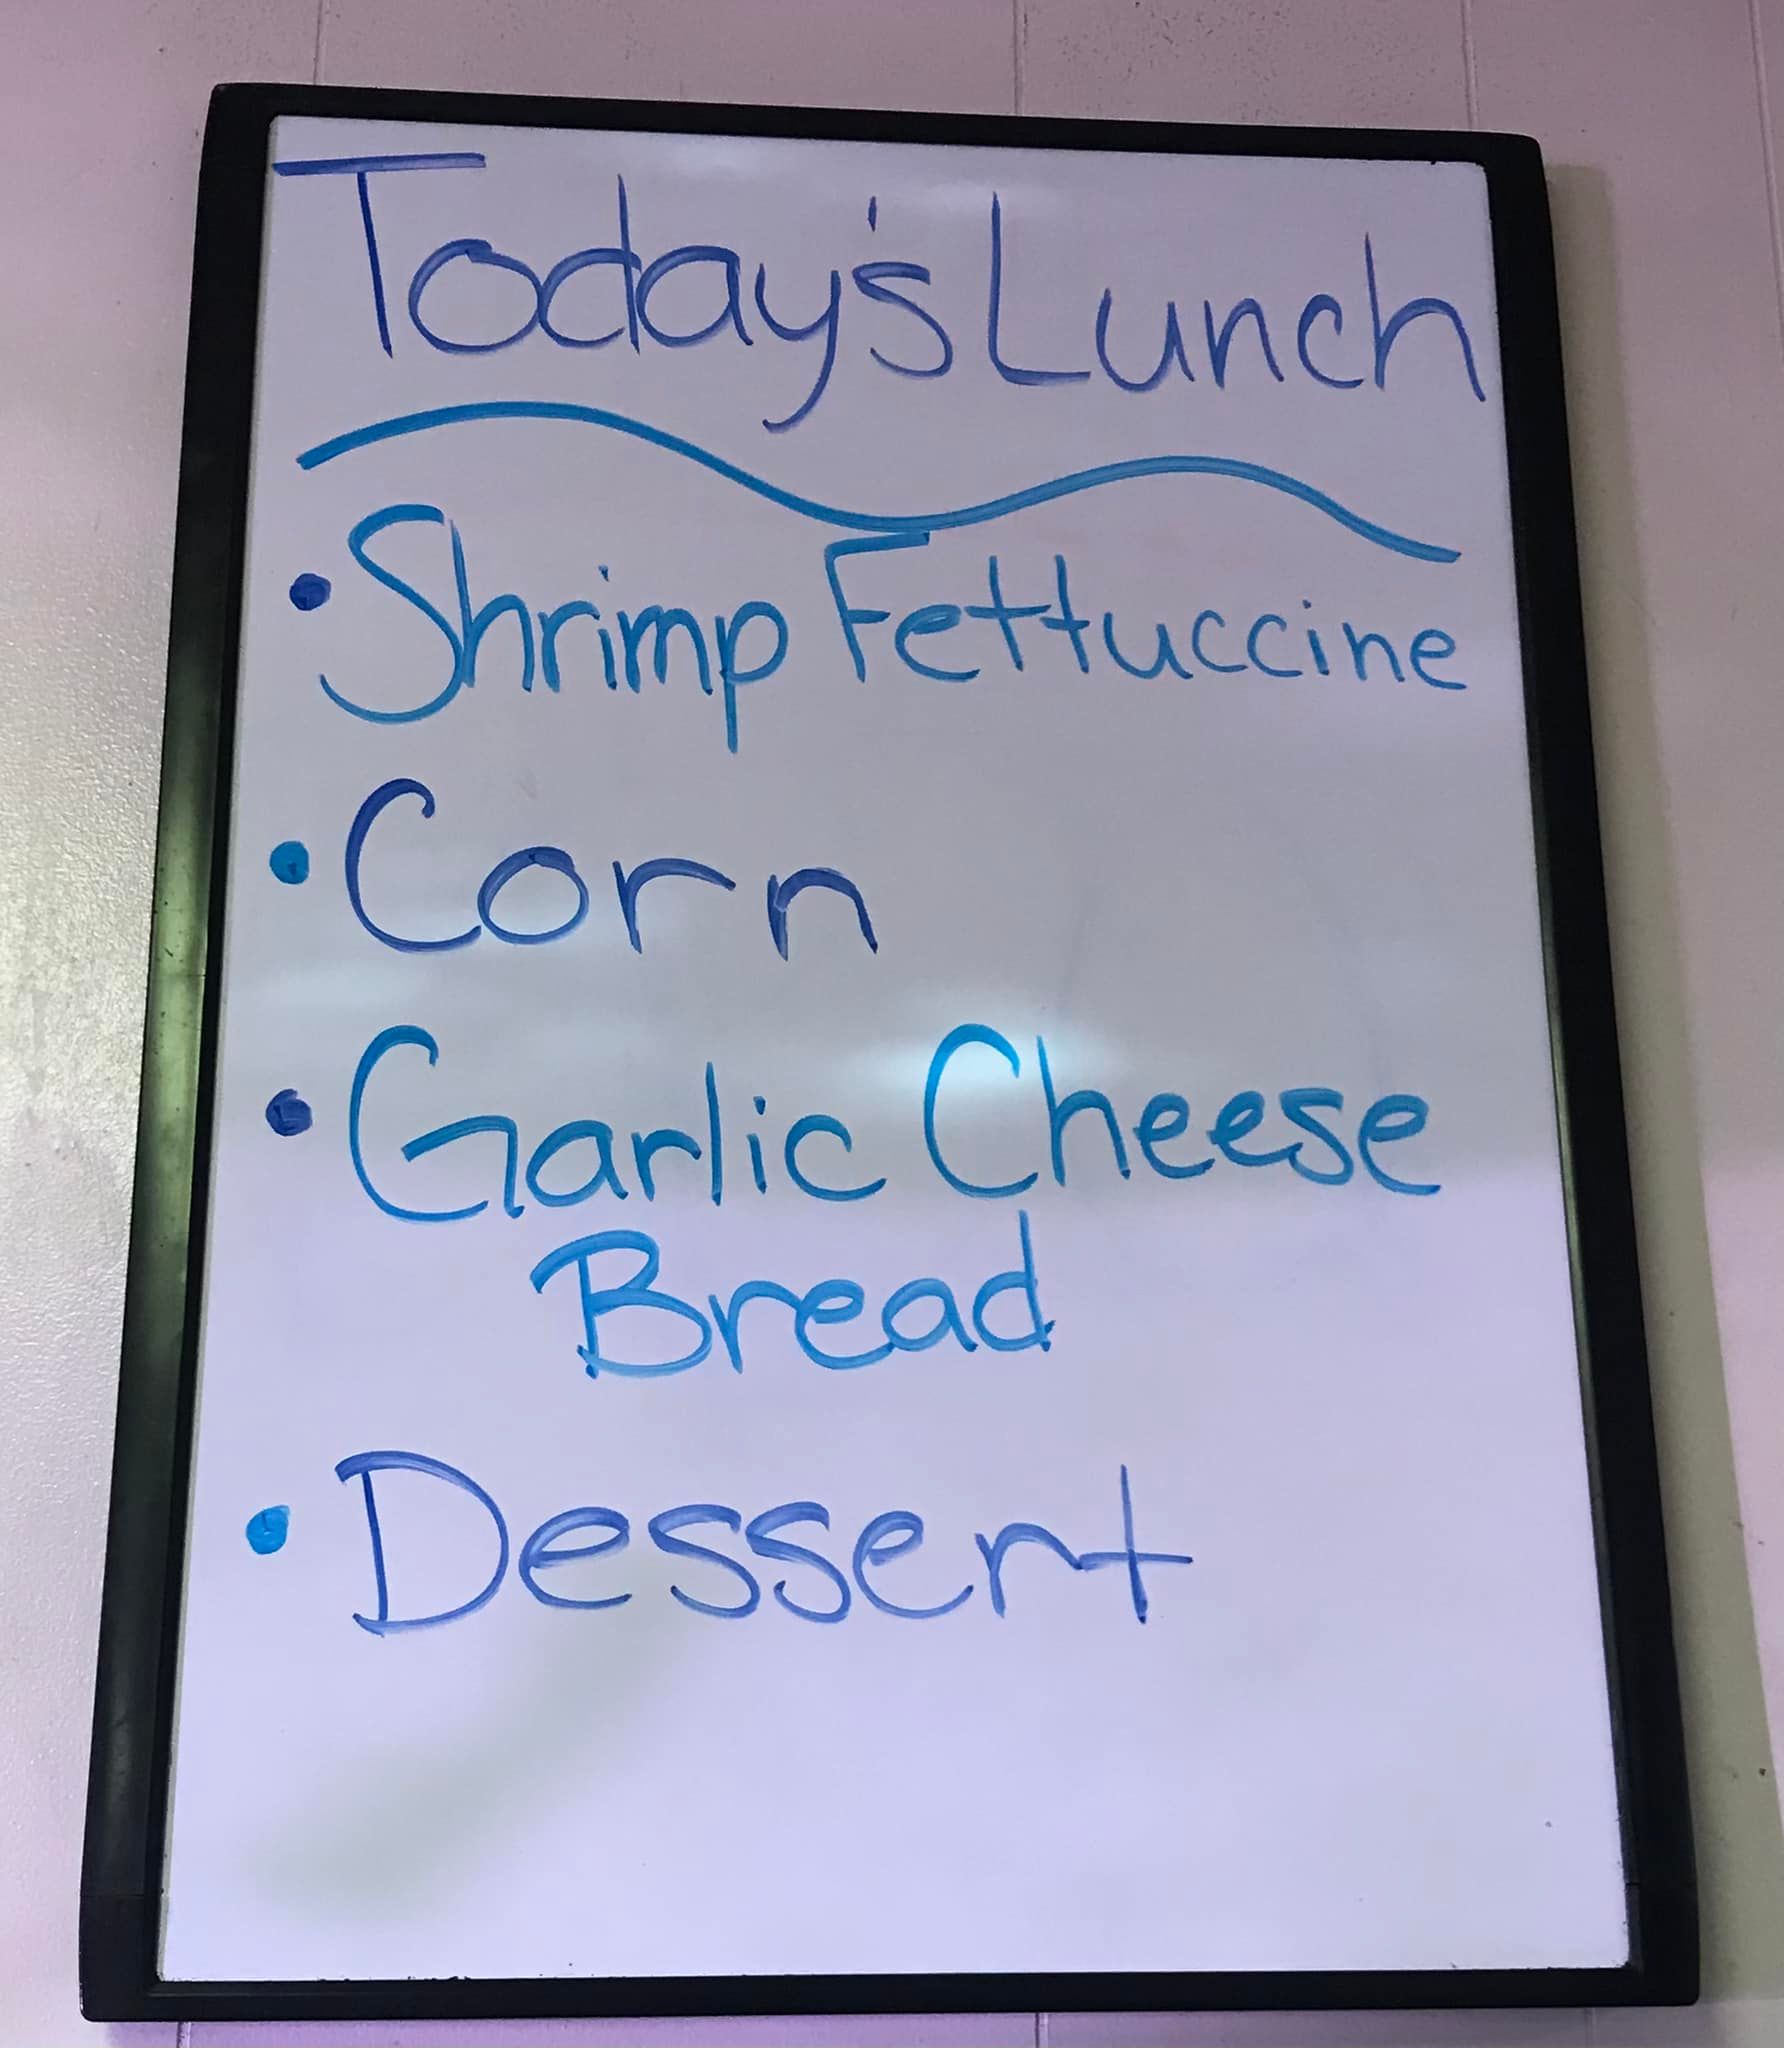 Today's Lunch
• Shrimp Fettuccine
• Corn
• Garlic Cheese
Bread
• Dessert